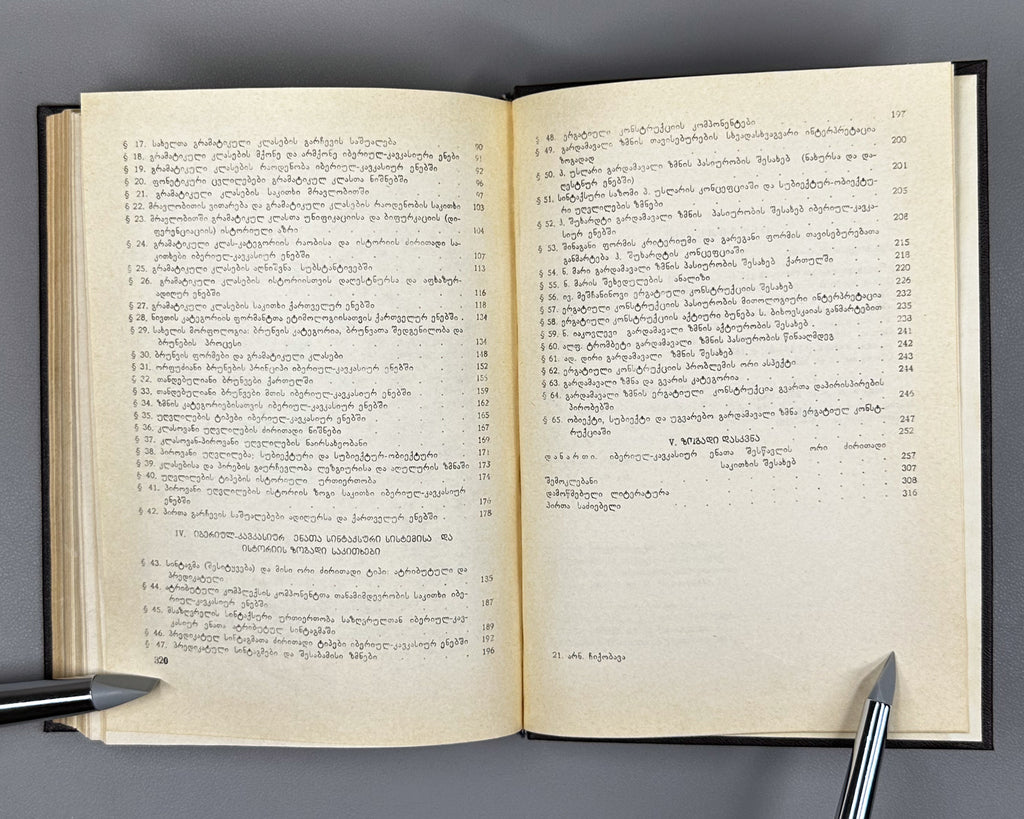 § 17. სახელთა გრამატიკული კლასების გარჩევის საშუალება 90
§ 18. გრამატიკული კლასების მქონე და არმქონე იბერიულ-კავკასიური ენები 91
§ 19. გრამატიკული კლასების რაოდენობა იბერიულ-კავკასიურ ენებში 92
§ 20. ფონეტიკური ცვლილებები გრამატიკულ კლასთა ნიშნებში 96
§ 21. გრამატიკული კლასების საკითხი მრავლობითში 97
§ 22. მრავლობითის ვითარება და გრამატიკული კლასების რაოდენობის საკითხი 103
§ 23. მრავლობითში გრამატიკულ კლასთა უნიფიკაციისა და ბიფურკაციის (დი-
ფერენციაციის) ისტორიული აზრი 104
§ 24. გრამატიკული კლას-კატეგორიის რაობისა და ისტორიის ძირითადი სა-
კითხები იბერიულ-კავკასიურ ენებში 107
§ 25. გრამატიკული კლასების აღნიშვნა სუბსტანტივებში 113
§ 26. გრამატიკული კლასების ისტორიისთვის დაღესტნურსა და აფხაზურ-
ადიღურ ენებში 116
§ 27. გრამატიკული კლასების საკითხი ქართველურ ენებში 118
§ 28. ნივთის კატეგორიის ფორმანტთა ეტიმოლოგიისათვის ქართველურ ენებში . 134
§ 29. სახელის მორფოლოგია: ბრუნვის კატეგორია, ბრუნვათა შედგენილობა და
ბრუნების პროცესი 134
§ 30. ბრუნვის ფორმები და გრამატიკული კლასები 148
§ 31. ორფუძიანი ბრუნების პრინციპი იბერიულ-კავკასიურ ენებში 152
§ 32. თანდებულიანი ბრუნვები ქართულში 155
§ 33. თანდებულიანი ბრუნვები მთის იბერიულ-კავკასიურ ენებში 159
§ 34. ზმნის კატეგორიებისათვის იბერიულ-კავკასიურ ენებში 162
§ 35. უღვლილების ტიპები იბერიულ-კავკასიურ ენებში 165
§ 36. კლასოვანი უღვლილების ძირითადი ნიშნები 167
§ 37. კლასოვან-პიროვანი უღვლილების ნაირსახეობანი 169
§ 38. პიროვანი უღვლილება: სუბიექტური და სუბიექტურ-ობიექტური 171
§ 39. კლასებისა და პირების გაურჩევლობა ლეზგიურისა და აღულურის ზმნაში 173
§ 40. უღვლილების ტიპების ისტორიული ურთიერთობა 174
§ 41. პიროვანი უღვლილების ისტორიის ზოგი საკითხი იბერიულ-კავკასიურ
ენებში 176
§ 42. პირთა გარჩევის საშუალებები ადიღურსა და ქართველურ ენებში . 178
IV. იბერიულ-კავკასიურ ენათა სინტაქსური სისტემისა და
ისტორიის ზოგადი საკითხები
§ 43. სინტაგმა (შესიტყვება) და მისი ორი ძირითადი ტიპი: ატრიბუტული და
პრედიკატული 135
§ 44. ატრიბუტული კომპლექსის კომპონენტთა თანამიმდევრობის საკითხი იბე-
რიულ-კავკასიურ ენებში 187
§ 45. მსაზღვრელის სინტაქსური ურთიერთობა საზღვრულთან იბერიულ-კავ-
კასიურ ენათა ატრიბუტულ სინტაგმაში 189
§ 46. პრედიკატულ სინტაგმათა ძირითადი ტიპები იბერიულ-კავკასიურ ენებში 192
§ 47. პრედიკატული სინტაგმები და შესაბამისი ზმნები 196
320
§ 48. ერგატიული კონსტრუქციის კომპონენტები 197
§ 49. გარდამავალი ზმნის თავისებურების სხვადასხვაგვარი ინტერპრეტაცია
ზოგადად 200
§ 50. პ. უსლარი გარდამავალი ზმნის პასიურობის შესახებ (ნახურსა და და-
ღესტნურ ენებში) 201
§ 51. სინტაქსური საზომი პ. უსლარის კონცეფციაში და სუბიექტურ-ობიექტუ-
რი უღვლილების ზმნები 205
§ 52. ჰ. შუხარდტი გარდამავალი ზმნის პასიურობის შესახებ იბერიულ-კავკა-
სიურ ენებში 208
§ 53. შინაგანი ფორმის კრიტერიუმი და გარეგანი ფორმის თავისებურებათა
განმარტება ჰ. შუხარდტის კონცეფციაში 215
§ 54. ნ. მარი გარდამავალი ზმნის პასიურობის შესახებ ქართულში 218
§ 55. ნ. მარის შეხედულების ანალიზი 220
§ 56. ივ. მეშჩანინოვი ერგატიული კონსტრუქციის შესახებ 226
§ 57. ერგატიული კონსტრუქციის პასიურობის მითოლოგიური ინტერპრეტაცია 232
§ 58. ერგატიული კონსტრუქციის აქტიური ბუნება ს. ბიხოვსკაიას განმარტებით 235
§ 59. ნ. იაკოვლევი გარდამავალი ზმნის აქტიურობის შესახებ . 238
§ 60. ალფ. ტრომბეტი გარდამავალი ზმნის პასიურობის წინააღმდეგ 241
§ 61. ად. დირი გარდამავალი ზმნის შესახებ 242
§ 62. ერგატიული კონსტრუქციის პრობლემის ორი ასპექტი 243
§ 63. გარდამავალი ზმნა და გვარის კატეგორია 244
§ 64. გარდამავალი ზმნის ერგატიული კონსტრუქცია გვართა დაპირისპირების
პირობებში 246
§ 65. ობიექტი, სუბიექტი და უგვარებო გარდამავალი ზმნა ერგატიულ კონსტ-
რუქციაში 247
V. ზოგადი დასკვნა 252
დანართი. იბერიულ-კავკასიურ ენათა შესწავლის ორი ძირითადი
საკითხის შესახებ 257
შემოკლებანი 307
დამოწმებული ლიტერატურა 308
პირთა საძიებელი 316
21. არნ. ჩიქობავა